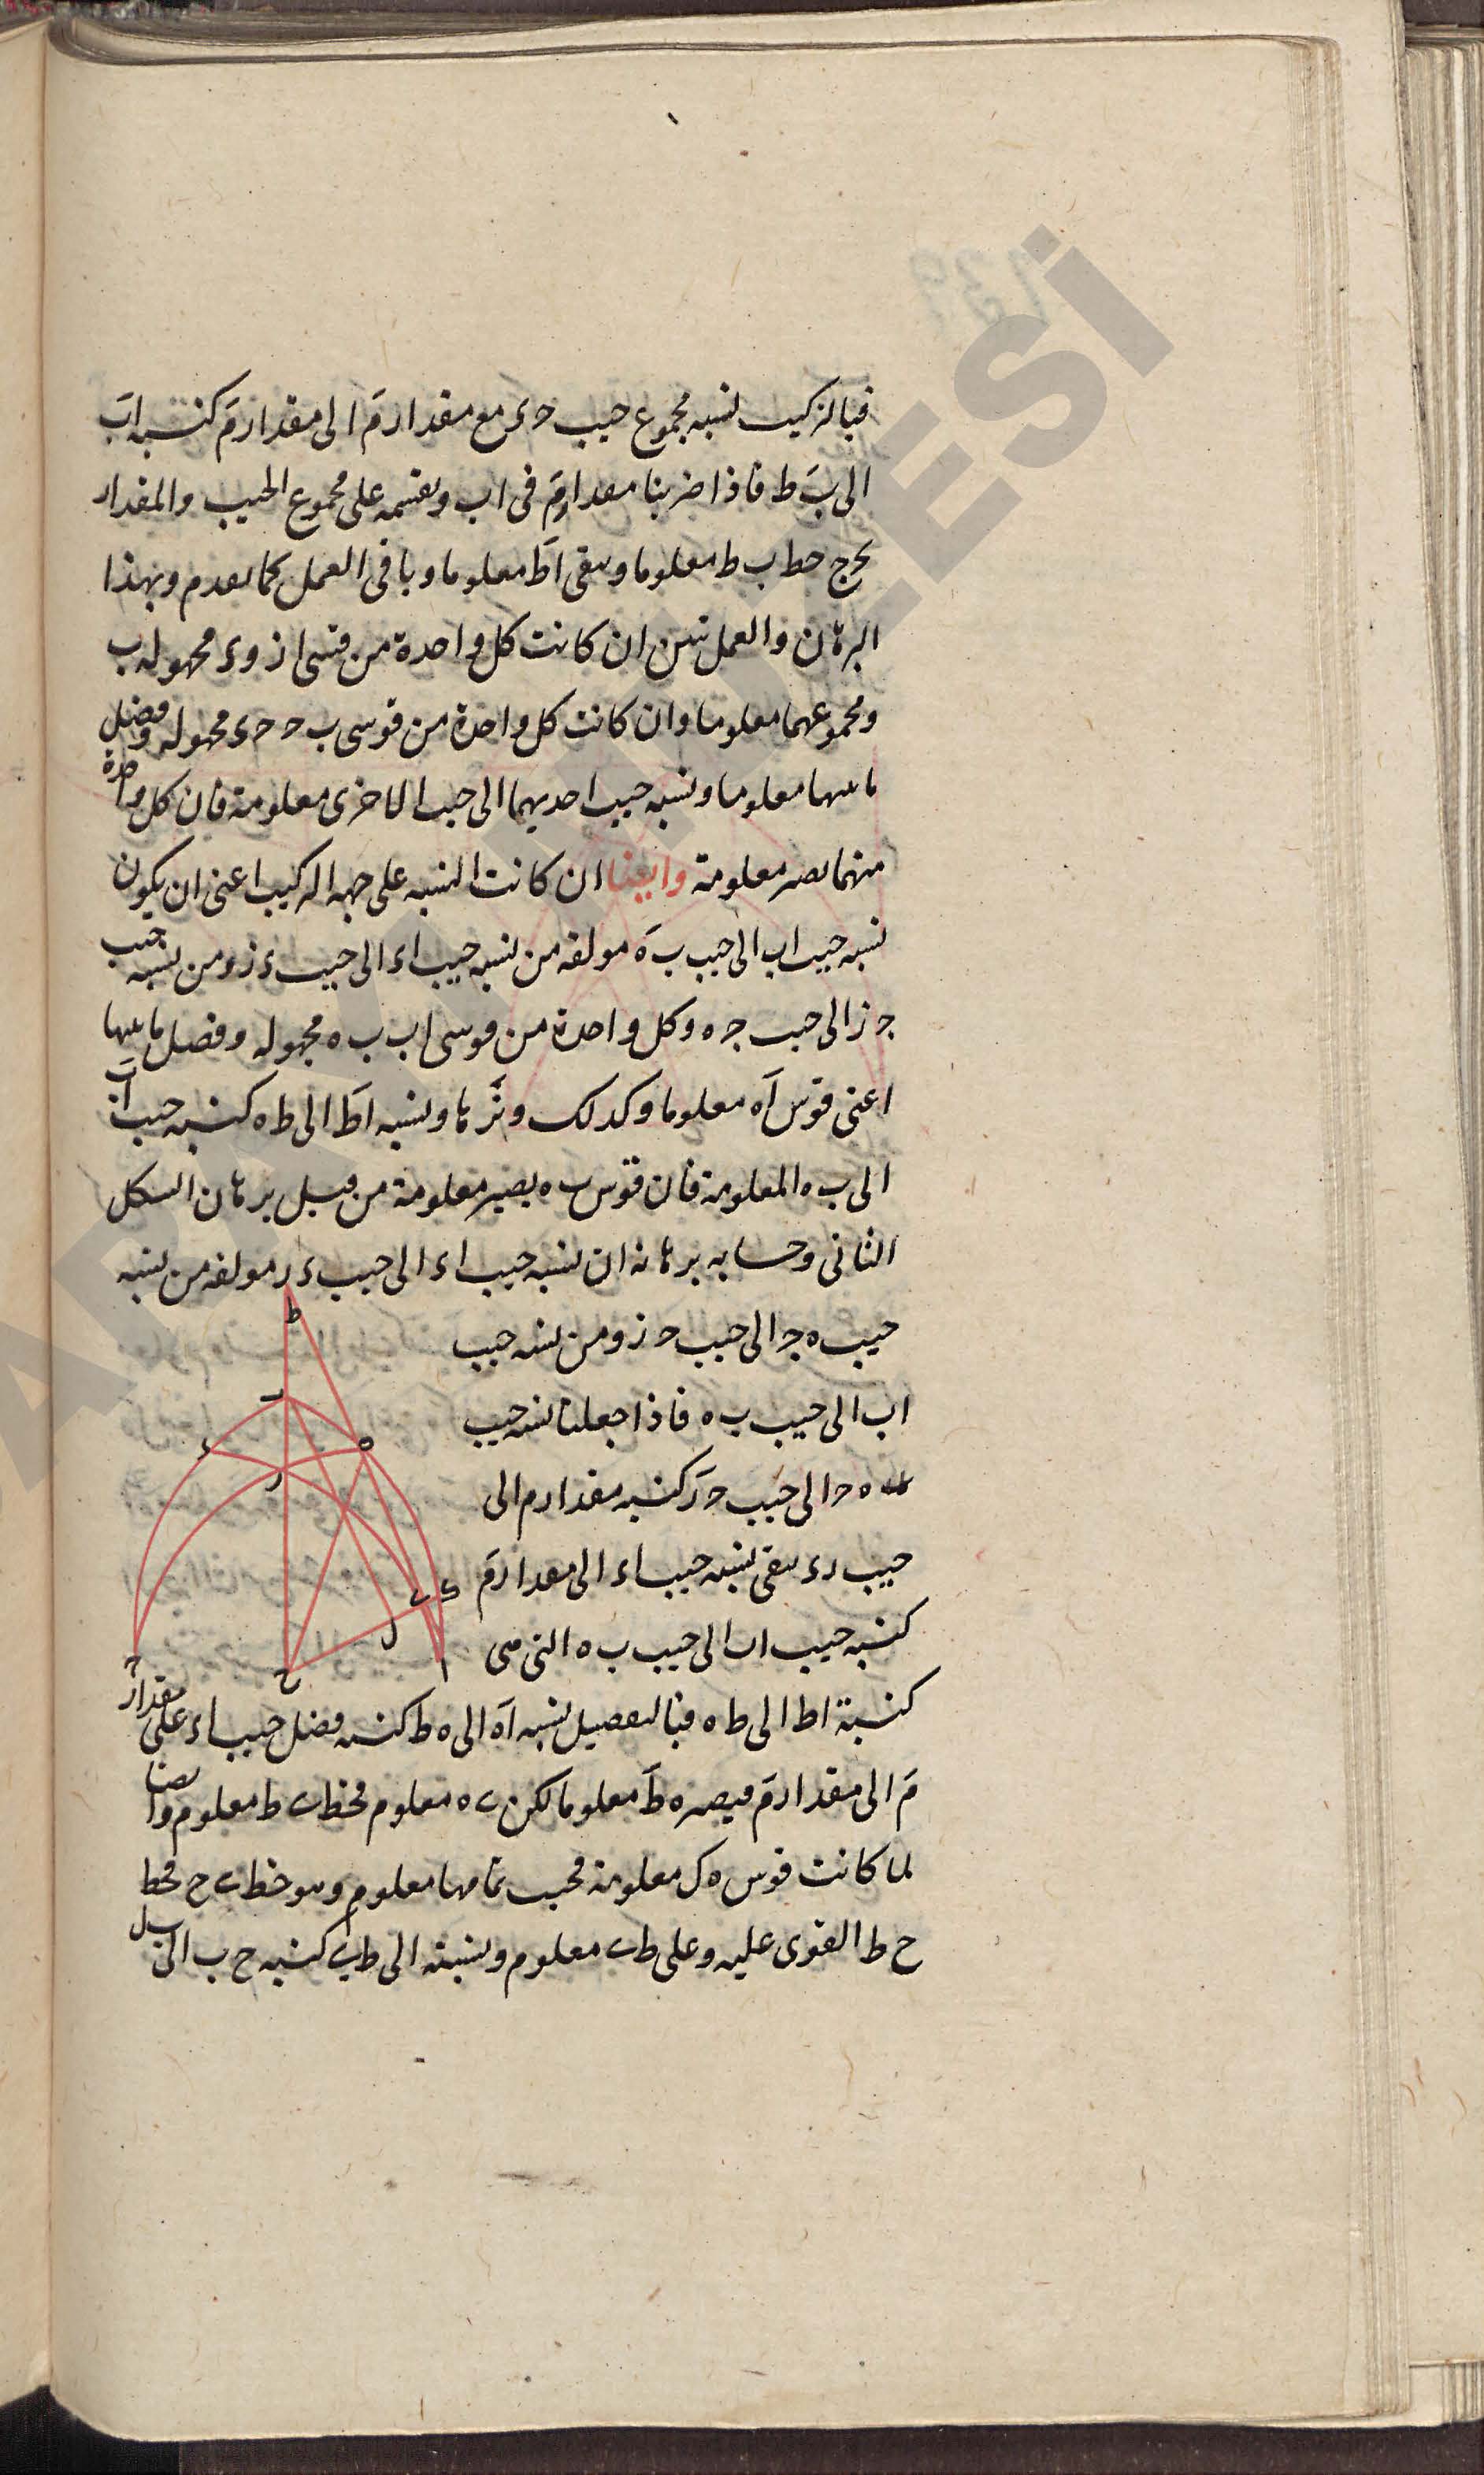 فبالتركيب نسبه مجموع جيب حء مع مقدار مَ الى مقدار مَ كنسبه ابَ
الى بَ ط فاذا ضربنا مقدار مَ فى اب ونقسمه على مجموع الجيب والمقدار
يخرج خط ب ط معلوما ويبقى اطَ معلوما وباقى العمل كما تقدم وبهذا
البرهان والعمل نبين ان كانت كل واحدة من قسى از وء مجهوله ب
ومجموعهما معلوما وان كانت كل واحدة من قوسى ب ح حء مجهوله وفضل
ما بينهما معلوما ونسبه جيب احديهما الى جيب الاخرى معلومة فان كل واحدة
منهما تصير معلومة وايضا ان كانت النسبه على جهه التركيب اعنى ان يكون
نسبه جيب اب الى جيب ب هَ مولفه من نسبه جيب اء الى جيب ء ز ومن نسبه جيب
جز الى جيب جه وكل واحدة من قوسى اب ب ه مجهوله وفضل ما بينهما
اعنى قوس اَه معلوما وكذلك وترَها ونسبه اطَ الى طه كنسبه جيب اب
الى ب ه المعلومة فان قوس ب ه يصير معلومة من قبل برهان الشكل
الثانى وحسابه برهانه ان نسبه جيب اء الى جيب ء ز مولفه من نسبه
جيب ه ج الى جيب ح ز ومن نسبه جيب
اب الى جيب ب ه فاذا جعلنا نسبه جيب
ه ح الى جيب ح زَ كنسبه مقدار م الى
جيب زء يبقى نسبه جيب اء الى مقدار مَ
كنسبه جيب اب الى جيب ب ه التى هى
كنسبة اط الى ط ه فبالتفصيل نسبه اَه الى ه ط كنسبه فضل جيب اء على مقدار
مَ الى مقدار مَ فيصير ه طَ معلوما لكن ى ه معلوم فخط ى ط معلوم وايضا
لما كانت قوس ه ك معلومة فجيب تمامها معلوم وهو خط ى ح فخط
ح ط القوى عليه وعلى ط ى معلوم ونسبته الى ط ى كنسبه ح ب الى
ط
ب
ء
ه
ز
ى
ك
ل
ا
ح
ج